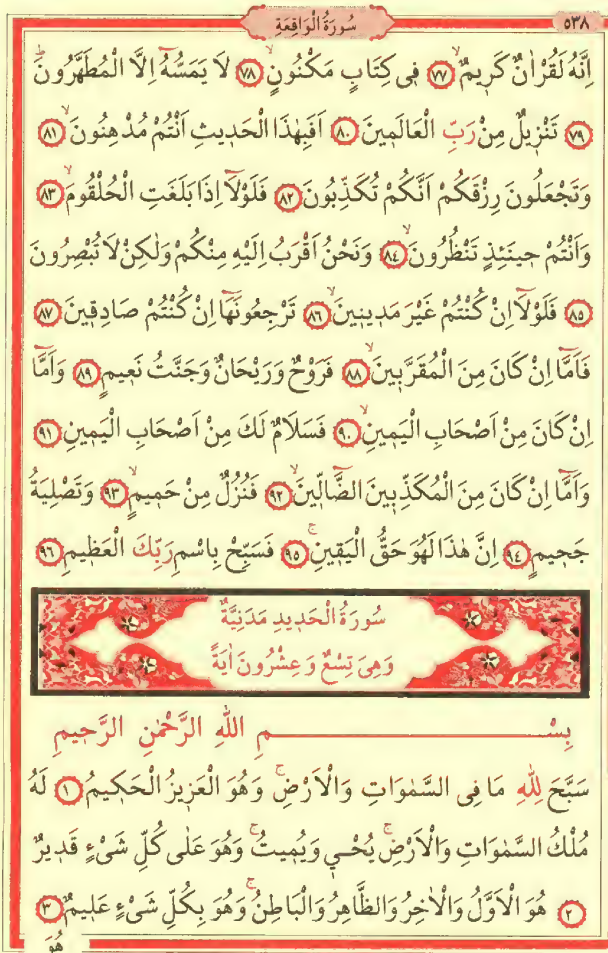 سُورَةُ الْوَاقِعَةِ
٥٣٨
اِنَّهُ لَقُرْاٰنٌ كَرٖيمٌۙ ﴿٧٧﴾ فٖى كِتَابٍ مَكْنُونٍۙ ﴿٧٨﴾ لَا يَمَسُّهُٓ اِلَّا الْمُطَهَّرُونَۜ
﴿٧٩﴾ تَنْزٖيلٌ مِنْ رَبِّ الْعَالَمٖينَ ﴿٨٠﴾ اَفَبِهٰذَا الْحَدٖيثِ اَنْتُمْ مُدْهِنُونَۙ ﴿٨١﴾
وَتَجْعَلُونَ رِزْقَكُمْ اَنَّكُمْ تُكَذِّبُونَ ﴿٨٢﴾ فَلَوْلَٓا اِذَا بَلَغَتِ الْحُلْقُومَۙ ﴿٨٣﴾
وَاَنْتُمْ حٖينَئِذٍ تَنْظُرُونَۙ ﴿٨٤﴾ وَنَحْنُ اَقْرَبُ اِلَيْهِ مِنْكُمْ وَلٰكِنْ لَا تُبْصِرُونَ
﴿٨٥﴾ فَلَوْلَٓا اِنْ كُنْتُمْ غَيْرَ مَدٖينٖينَۙ ﴿٨٦﴾ تَرْجِعُونَهَٓا اِنْ كُنْتُمْ صَادِقٖينَ ﴿٨٧﴾
فَاَمَّٓا اِنْ كَانَ مِنَ الْمُقَرَّبٖينَۙ ﴿٨٨﴾ فَرَوْحٌ وَرَيْحَانٌ وَجَنَّتُ نَعٖيمٍ ﴿٨٩﴾ وَاَمَّٓا
اِنْ كَانَ مِنْ اَصْحَابِ الْيَمٖينِۙ ﴿٩٠﴾ فَسَلَامٌ لَكَ مِنْ اَصْحَابِ الْيَمٖينِ ﴿٩١﴾
وَاَمَّٓا اِنْ كَانَ مِنَ الْمُكَذِّبٖينَ الضَّٓالّٖينَۙ ﴿٩٢﴾ فَنُزُلٌ مِنْ حَمٖيمٍۙ ﴿٩٣﴾ وَتَصْلِيَةُ
جَحٖيمٍ ﴿٩٤﴾ اِنَّ هٰذَا لَهُوَ حَقُّ الْيَقٖينِۚ ﴿٩٥﴾ فَسَبِّحْ بِاسْمِ رَبِّكَ الْعَظٖيمِ ﴿٩٦﴾
سُورَةُ الْحَدٖيدِ مَدَنِيَّةٌ
وَهِىَ تِسْعٌ وَعِشْرُونَ اٰيَةً
بِسْمِ اللّٰهِ الرَّحْمٰنِ الرَّحٖيمِ
سَبَّحَ لِلّٰهِ مَا فِى السَّمٰوَاتِ وَالْاَرْضِۚ وَهُوَ الْعَزٖيزُ الْحَكٖيمُ ﴿١﴾ لَهُ
مُلْكُ السَّمٰوَاتِ وَالْاَرْضِۚ يُحْيٖ وَيُمٖيتُۚ وَهُوَ عَلٰى كُلِّ شَىْءٍ قَدٖيرٌ
﴿٢﴾ هُوَ الْاَوَّلُ وَالْاٰخِرُ وَالظَّاهِرُ وَالْبَاطِنُۚ وَهُوَ بِكُلِّ شَىْءٍ عَلٖيمٌ ﴿٣﴾
هُوَ